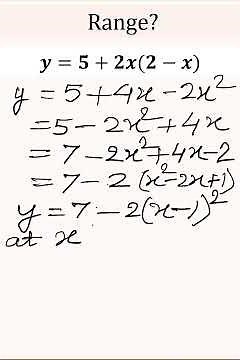 Range?
y = 5 + 2x(2 − x)
y = 5 + 4x − 2x²
= 5 − 2x² + 4x
= 7 − 2x² + 4x − 2
= 7 − 2 (x² − 2x + 1)
y = 7 − 2(x − 1)²
at x